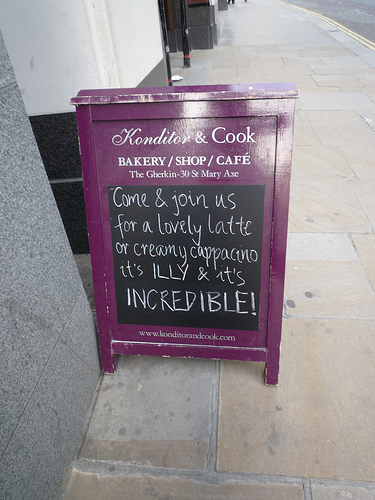 Konditor & Cook
BAKERY / SHOP / CAFÉ
The Gherkin-30 St Mary Axe
Come & join us
for a lovely latte
or creamy cappacino
it's ILLY & it's
INCREDIBLE!
www.konditorandcook.com